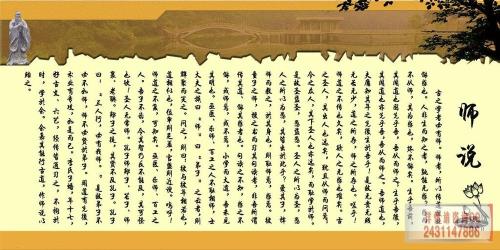 师说
古之学者必有师。师者，所以传道受业
解惑也。人非生而知之者，孰能无惑？惑而
不从师，其为惑也，终不解矣。生乎吾前，
其闻道也固先乎吾，吾从而师之；生乎吾后，
其闻道也亦先乎吾，吾从而师之。吾师道也，
夫庸知其年之先后生于吾乎？是故无贵无贱，
无长无少，道之所存，师之所存也。嗟乎！
师道之不传也久矣！欲人之无惑也难矣！古
之圣人，其出人也远矣，犹且从师而问焉；
今之众人，其下圣人也亦远矣，而耻学于师。
是故圣益圣，愚益愚。圣人之所以为圣，愚
人之所以为愚，其皆出于此乎？爱其子，择
师而教之；于其身也，则耻师焉，惑矣。彼
童子之师，授之书而习其句读者，非吾所谓
传其道解其惑者也。句读之不知，惑之不
解，或师焉，或不焉，小学而大遗，吾未见
其明也。巫医、乐师、百工之人不耻相师。士
大夫之族，曰“师”曰“弟子”之云者，则
群聚而笑之。问之，则曰：彼与彼年相若也，
道相似也，位卑则足羞，官盛则近谀。呜呼！
师道之不复，可知矣。巫医、乐师、百工之
人，君子不齿，今其智乃反不能及，其可怪
也欤！圣人无常师。孔子师郯子、苌弘、师
襄、老聃。郯子之徒，其贤不及孔子。孔子
曰：“三人行，必有我师。”是故弟子不
必不如师，师不必贤于弟子。闻道有先后，
术业有专攻，如是而已。李氏子蟠，年十七，
好古文，六艺经传皆通习之，不拘于
时，学于余。余嘉其能行古道，作师说以
贻之。
2431147886